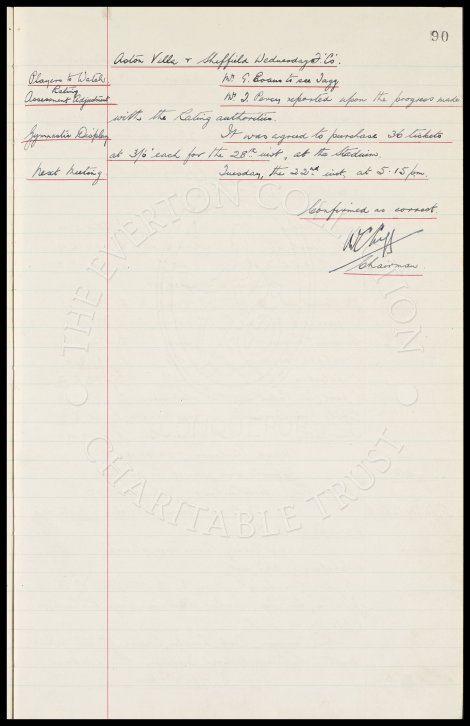 90
Aston Villa & Sheffield Wednesday F.Cs.
Players to Watch. Mr G. Evans to see Jagg
Rating
Assessment Adjustment Mr J. Percy reported upon the progress made
with the Rating authorities.
Gymnastic Display It was agreed to purchase 36 tickets
at 3/6 each for the 28th inst, at the Stadium.
Next Meeting Tuesday, the 22nd inst, at 5.15 pm.
Confirmed as correct.
W C Cuff
Chairman.
THE EVERTON COLLECTION
CHARITABLE TRUST